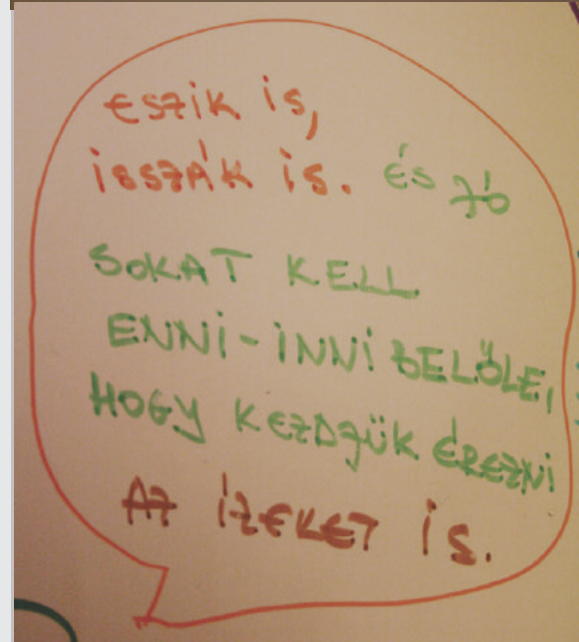 ESZIK IS,
ISSZÁK IS. ÉS JÓ
SOKAT KELL
ENNI-INNI BELŐLE,
HOGY KEZDJÜK ÉREZNI
AZ ÍZEKET IS.